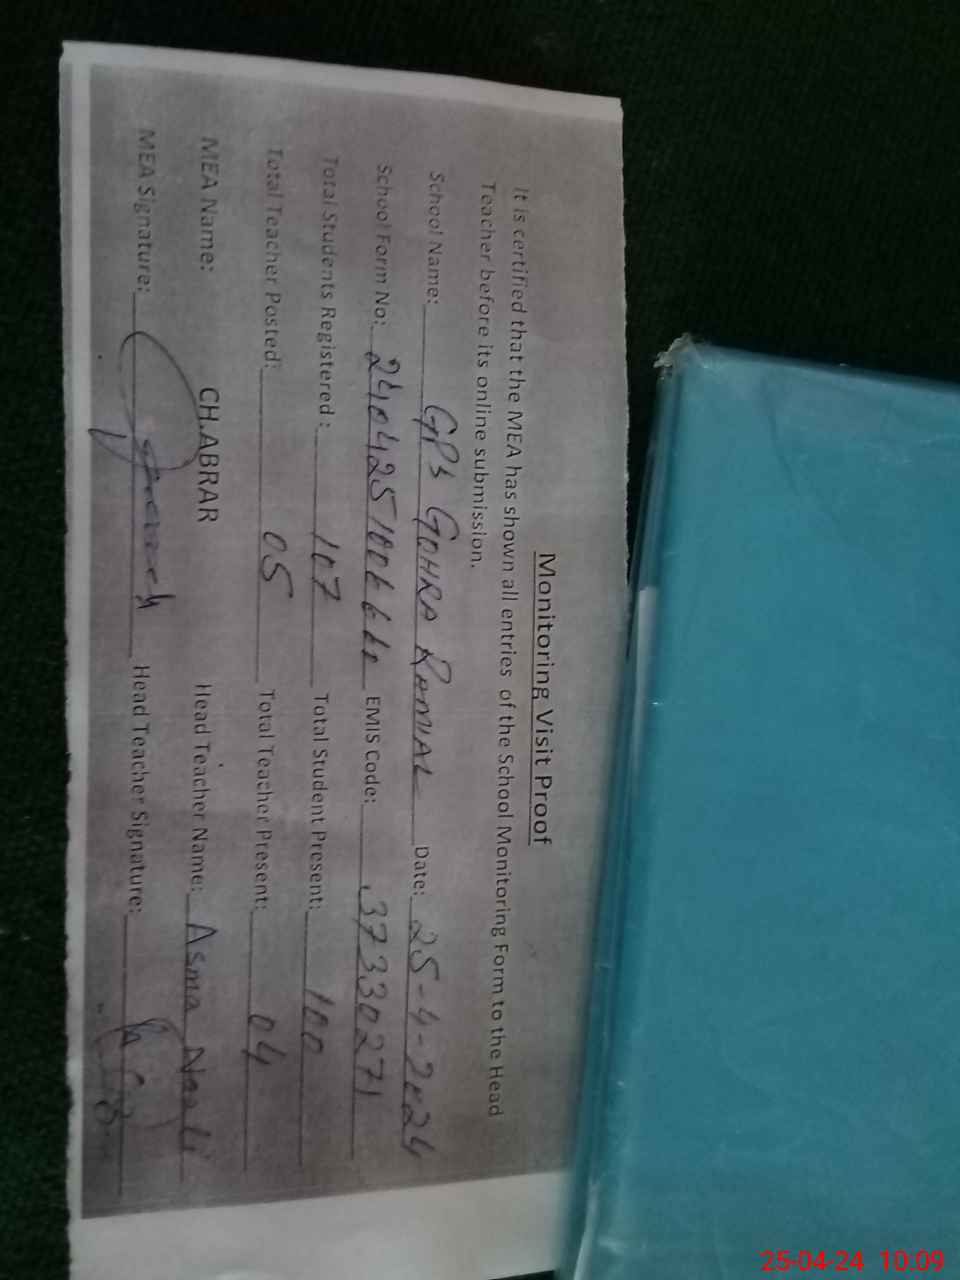 Monitoring Visit Proof
It is certified that the MEA has shown all entries of the School Monitoring Form to the Head
Teacher before its online submission.
School Name: GPS GOHRA RAMIAL Date: 25-4-2024
School Form No: EMIS Code: 37330271
Total Students Registered : 107 Total Student Present: 100
Total Teacher Posted: 05 Total Teacher Present: 04
MEA Name: CH.ABRAR Head Teacher Name: Asma
MEA Signature: Head Teacher Signature:
25-04-24 10:09